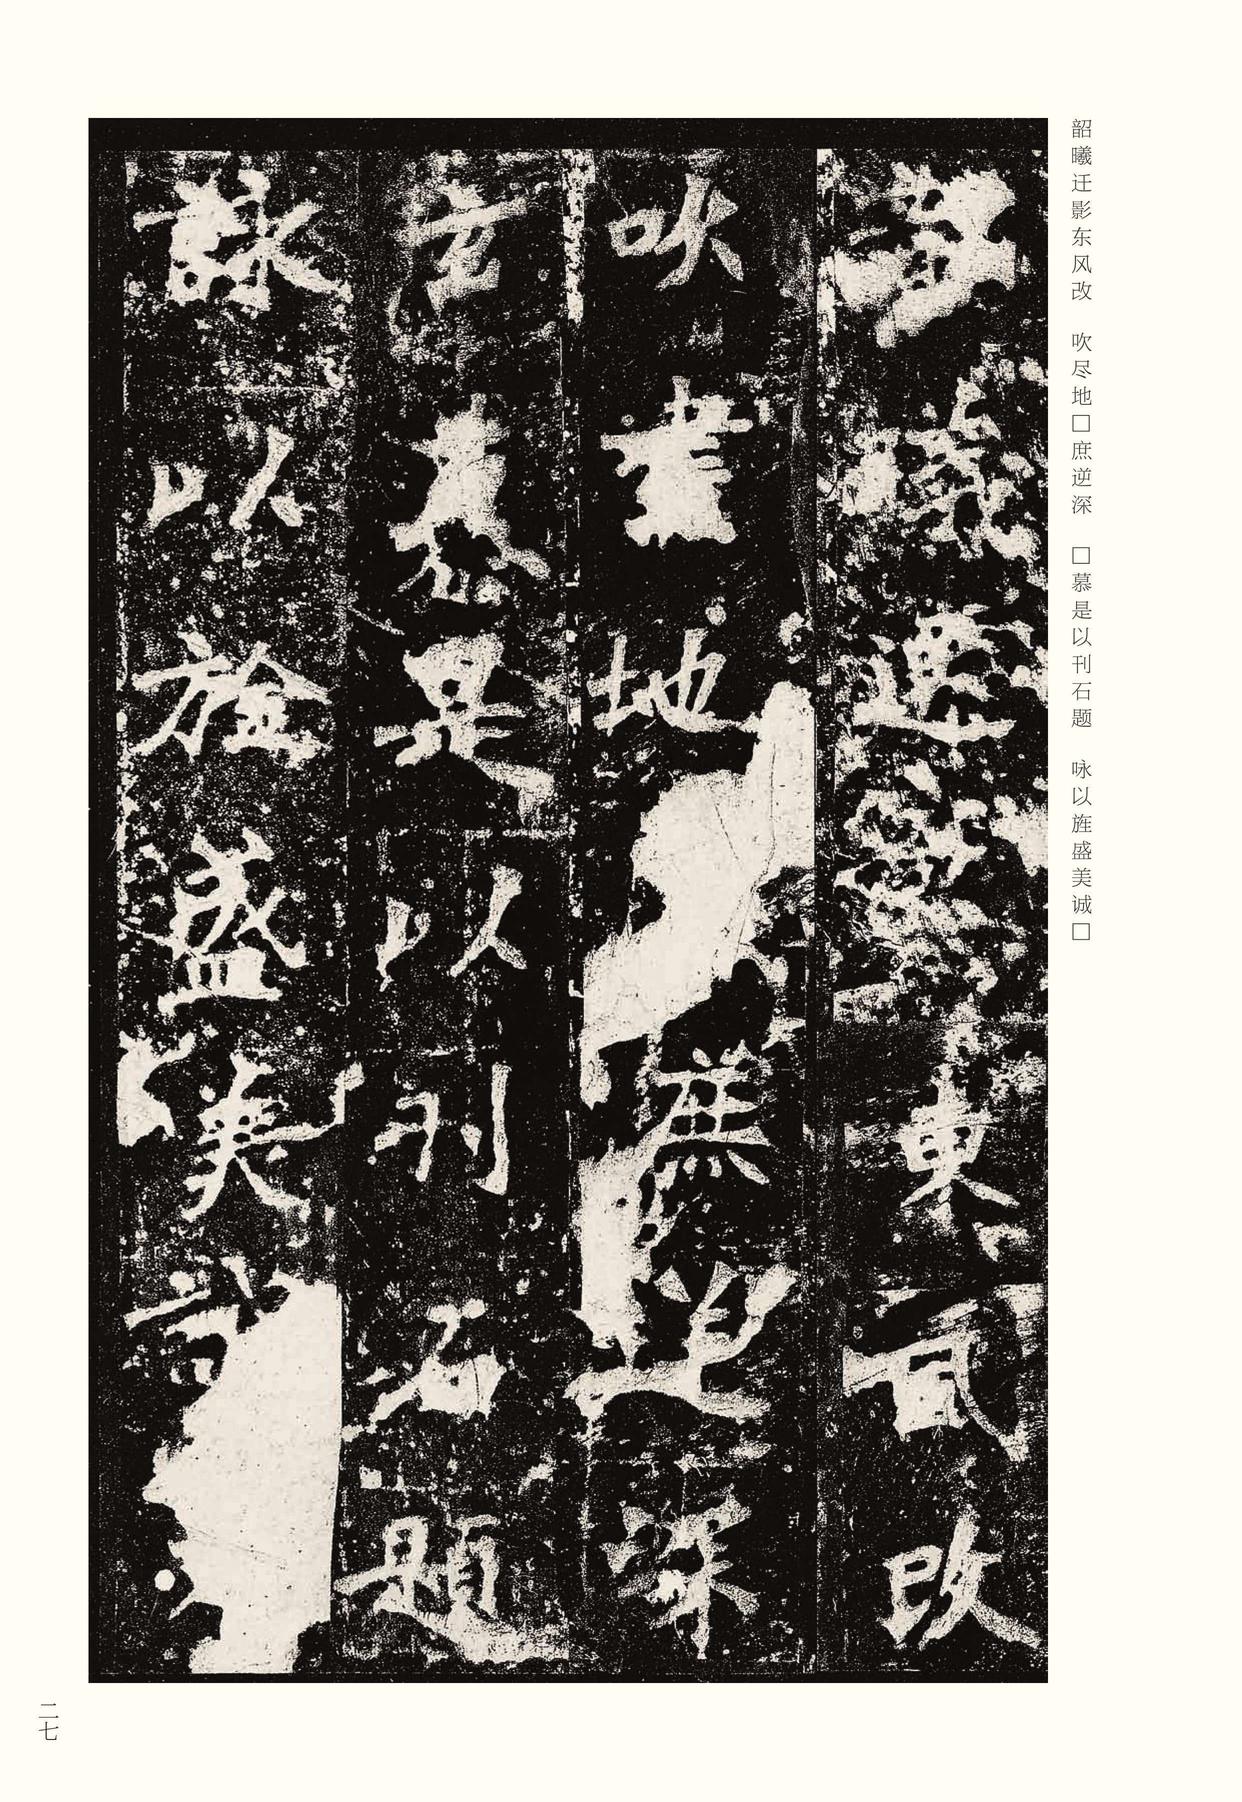 韶曦迁影东风改　吹尽地□庶逆深　□慕是以刊石题　咏以旌盛美诚□
曦遷影東風改
吹盡地
庶逆深
慕是以刊石題
詠以旌盛美
二七